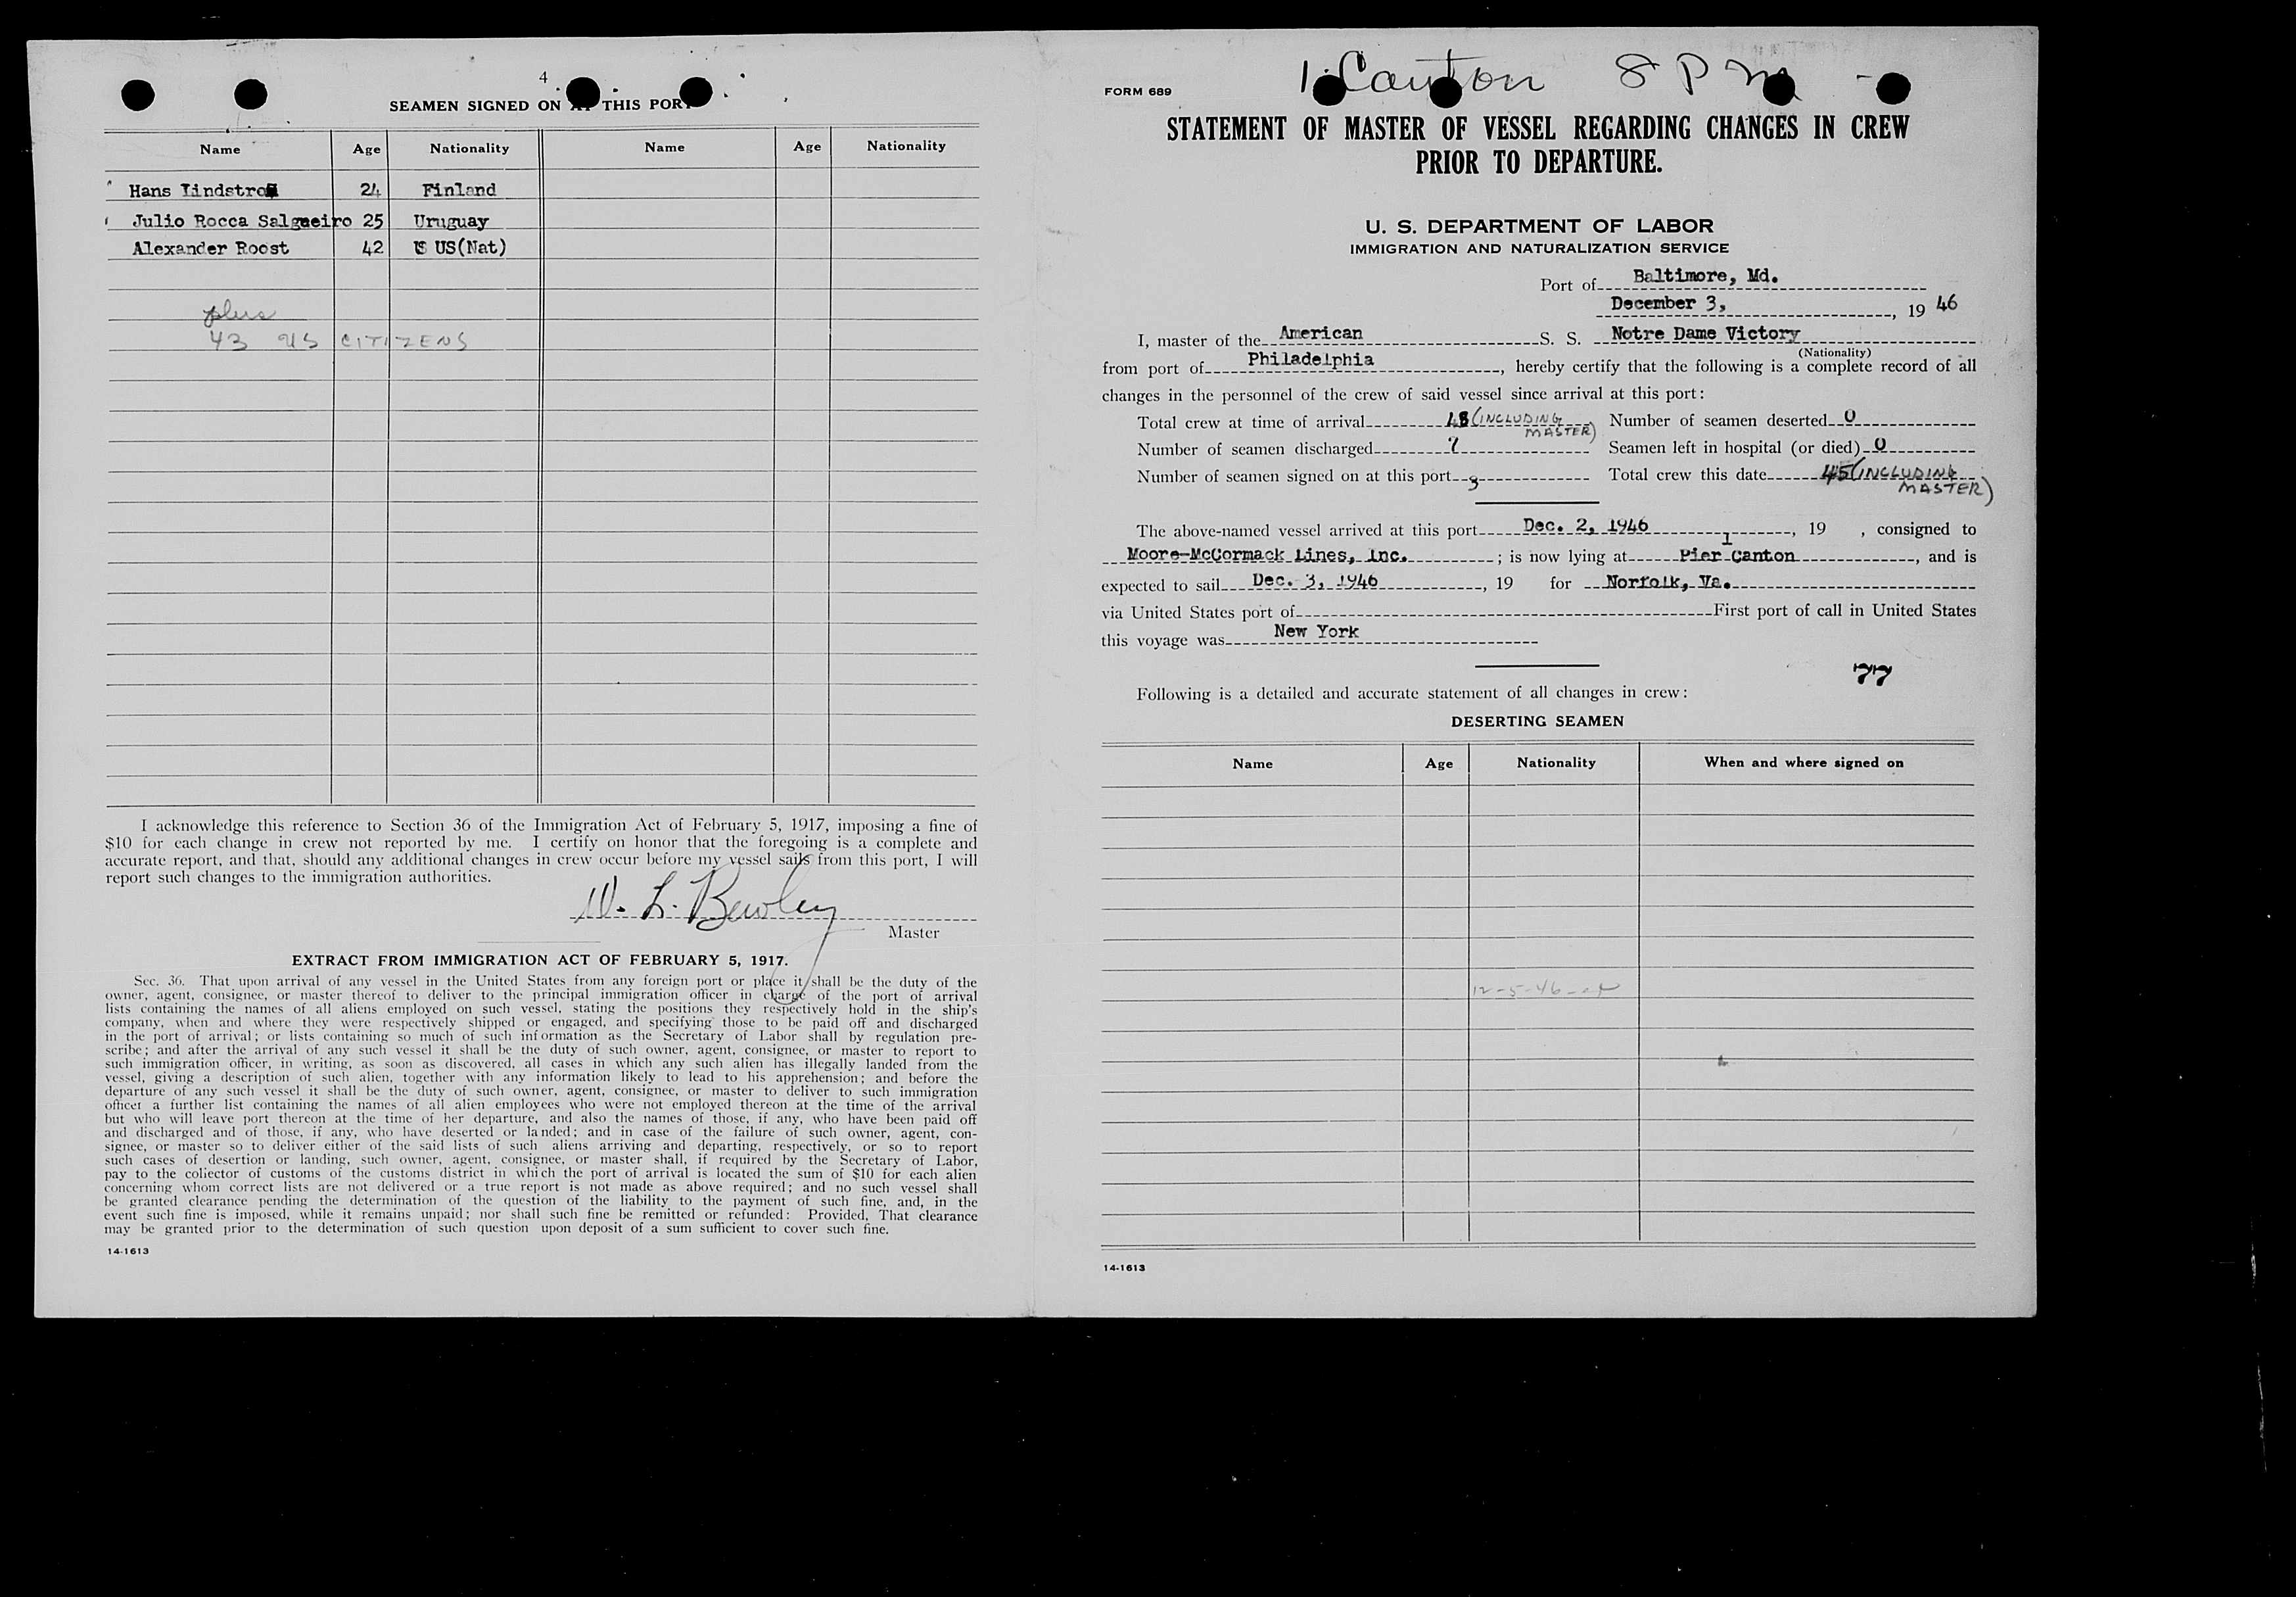 4
SEAMEN SIGNED ON AT THIS PORT
Name Age Nationality Name Age Nationality
Hans Lindstrom 24 Finland
Julio Rocca Salgueiro 25 Uruguay
Alexander Roost 42 US(Nat)
plus
43 US CITIZENS
I acknowledge this reference to Section 36 of the Immigration Act of February 5, 1917, imposing a fine of
$10 for each change in crew not reported by me. I certify on honor that the foregoing is a complete and
accurate report, and that, should any additional changes in crew occur before my vessel sails from this port, I will
report such changes to the immigration authorities.
W. L. Bewley
Master
EXTRACT FROM IMMIGRATION ACT OF FEBRUARY 5, 1917.
Sec. 36. That upon arrival of any vessel in the United States from any foreign port or place it shall be the duty of the
owner, agent, consignee, or master thereof to deliver to the principal immigration officer in charge of the port of arrival
lists containing the names of all aliens employed on such vessel, stating the positions they respectively hold in the ship's
company, when and where they were respectively shipped or engaged, and specifying those to be paid off and discharged
in the port of arrival; or lists containing so much of such information as the Secretary of Labor shall by regulation pre-
scribe; and after the arrival of any such vessel it shall be the duty of such owner, agent, consignee, or master to report to
such immigration officer, in writing, as soon as discovered, all cases in which any such alien has illegally landed from the
vessel, giving a description of such alien, together with any information likely to lead to his apprehension; and before the
departure of any such vessel it shall be the duty of such owner, agent, consignee, or master to deliver to such immigration
officer a further list containing the names of all alien employees who were not employed thereon at the time of the arrival
but who will leave port thereon at the time of her departure, and also the names of those, if any, who have been paid off
and discharged and of those, if any, who have deserted or landed; and in case of the failure of such owner, agent, con-
signee, or master so to deliver either of the said lists of such aliens arriving and departing, respectively, or so to report
such cases of desertion or landing, such owner, agent, consignee, or master shall, if required by the Secretary of Labor,
pay to the collector of customs of the customs district in which the port of arrival is located the sum of $10 for each alien
concerning whom correct lists are not delivered or a true report is not made as above required; and no such vessel shall
be granted clearance pending the determination of the question of the liability to the payment of such fine, and, in the
event such fine is imposed, while it remains unpaid; nor shall such fine be remitted or refunded: Provided, That clearance
may be granted prior to the determination of such question upon deposit of a sum sufficient to cover such fine.
14-1613
1 Canton 8 PM -
FORM 689
STATEMENT OF MASTER OF VESSEL REGARDING CHANGES IN CREW
PRIOR TO DEPARTURE.
U. S. DEPARTMENT OF LABOR
IMMIGRATION AND NATURALIZATION SERVICE
Port of Baltimore, Md.
December 3, , 19 46
I, master of the American S. S. Notre Dame Victory
(Nationality)
from port of Philadelphia , hereby certify that the following is a complete record of all
changes in the personnel of the crew of said vessel since arrival at this port:
Total crew at time of arrival (INCLUDING MASTER) Number of seamen deserted 0
Number of seamen discharged Seamen left in hospital (or died) 0
Number of seamen signed on at this port 3 Total crew this date 45 (INCLUDING MASTER)
The above-named vessel arrived at this port Dec. 2, 1946 , 19 , consigned to
Moore-McCormack Lines, Inc. ; is now lying at Pier 1 Canton , and is
expected to sail Dec. 3, 1946 , 19 for Norfolk, Va.
via United States port of First port of call in United States
this voyage was New York
77
Following is a detailed and accurate statement of all changes in crew:
DESERTING SEAMEN
Name Age Nationality When and where signed on
12-5-46
14-1613